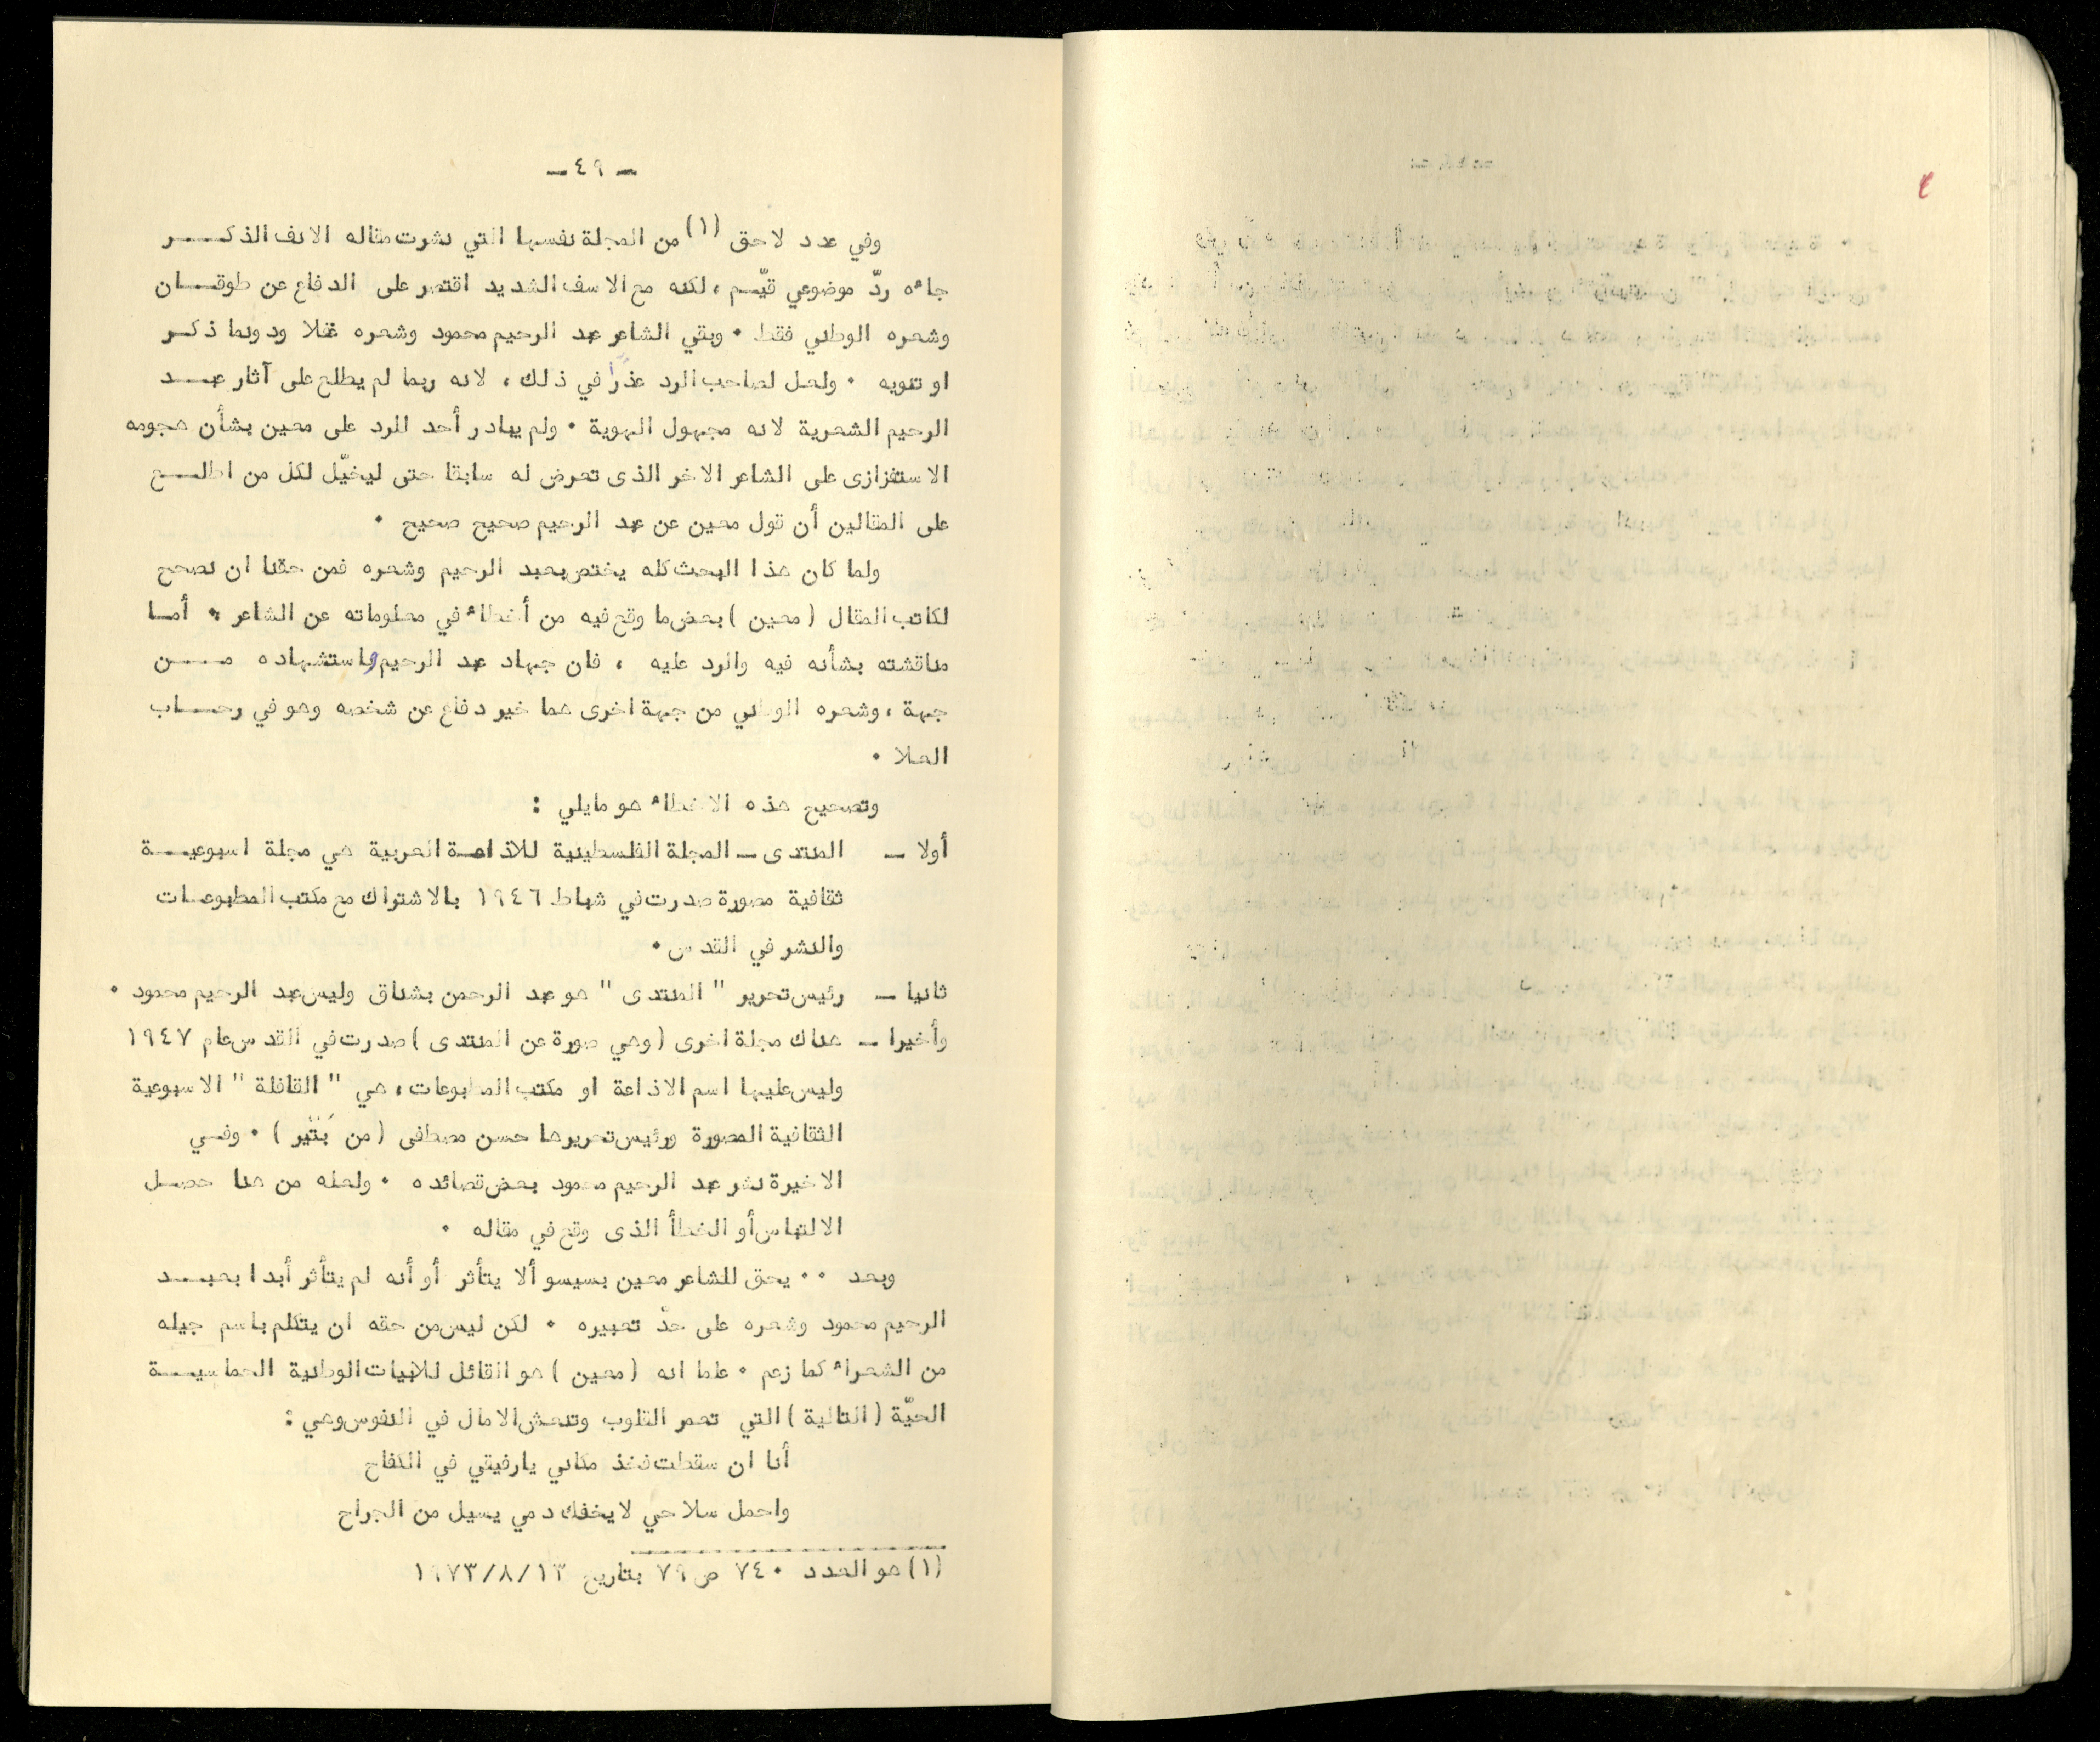 - ٤٩ -
وفي عدد لاحق (١) من المجلة نفسها التي نشرت مقاله الانف الذكر
جاءه ردّ موضوعي قيّم ، لكنه مع الاسف الشديد اقتصر على الدفاع عن طوقان
وشعره الوطني فقط ٠ وبقي الشاعر عبد الرحيم محمود وشعره غفلا ودونما ذكر
او تنويه ٠ ولعل لصاحب الرد عذرًا في ذلك ، لانه ربما لم يطلع على آثار عبد
الرحيم الشعرية لانه مجهول الهوية ٠ ولم يبادر أحد للرد على معين بشأن هجومه
الاستفزازى على الشاعر الاخر الذى تعرض له سابقا حتى ليخيّل لكل من اطلع
على المقالين أن قول معين عن عبد الرحيم صحيح صحيح ٠
ولما كان هذا البحث كله يختص بعبد الرحيم وشعره فمن حقنا ان نصحح
لكاتب المقال ( معين ) بعض ما وقع فيه من أخطاء في معلوماته عن الشاعر ٠ أما
مناقشته بشأنه فيه والرد عليه ، فان جهاد عبد الرحيم واستشهاده من
جهة ، وشعره الوطني من جهة اخرى هما خير دفاع عن شخصه وهو في رحاب
العلا ٠
وتصحيح هذه الاخطاء هو مايلي :
أولا – المنتدى – المجلة الفلسطينية للاذاعة العربية هي مجلة اسبوعية
ثقافية مصورة صدرت في شباط ١٩٤٦ بالاشتراك مع مكتب المطبوعات
والنشر في القدس ٠
ثانيا – رئيس تحرير " المنتدى " هو عبد الرحمن بشناق وليس عبد الرحيم محمود ٠
وأخيرا – هناك مجلة اخرى ( وهي صورة عن المنتدى ) صدرت في القدس عام ١٩٤٧
وليس عليها اسم الاذاعة او مكتب المطبوعات ، هي " القافلة " الاسبوعية
الثقافية المصورة ورئيس تحريرها حسن مصطفى ( من بَتّير ) ٠ وفي
الاخيرة نشر عبد الرحيم محمود بعض قصائده ٠ ولعله من هنا حصل
الالتباس أو الخطأ الذى وقع في مقاله ٠
وبعد ٠٠ يحق للشاعر معين بسيسو ألا يتأثر أو أنه لم يتأثر أبدا بعبد
الرحيم محمود وشعره على حدّ تعبيره ٠ لكن ليس من حقه ان يتكلم باسم جيله
من الشعراء كما زعم ٠ علما انه ( معين ) هو القائل للابيات الوطنية الحماسية
الحيّة ( التالية ) التي تعمر القلوب وتنعش الامال في النفوس وهي :
أنا ان سقطت فخذ مكاني يارفيقي في الكفاح
واحمل سلاحي لا يخفك دمي يسيل من الجراح
(١) هو العدد ٧٤٠ ص ٧٩ بتاريخ ١٩٧٣/٨/١٣